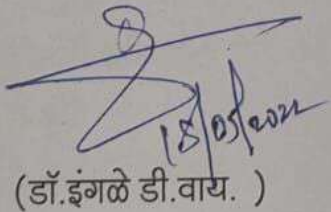 18/05/2022
(डॉ.इंगळे डी.वाय. )